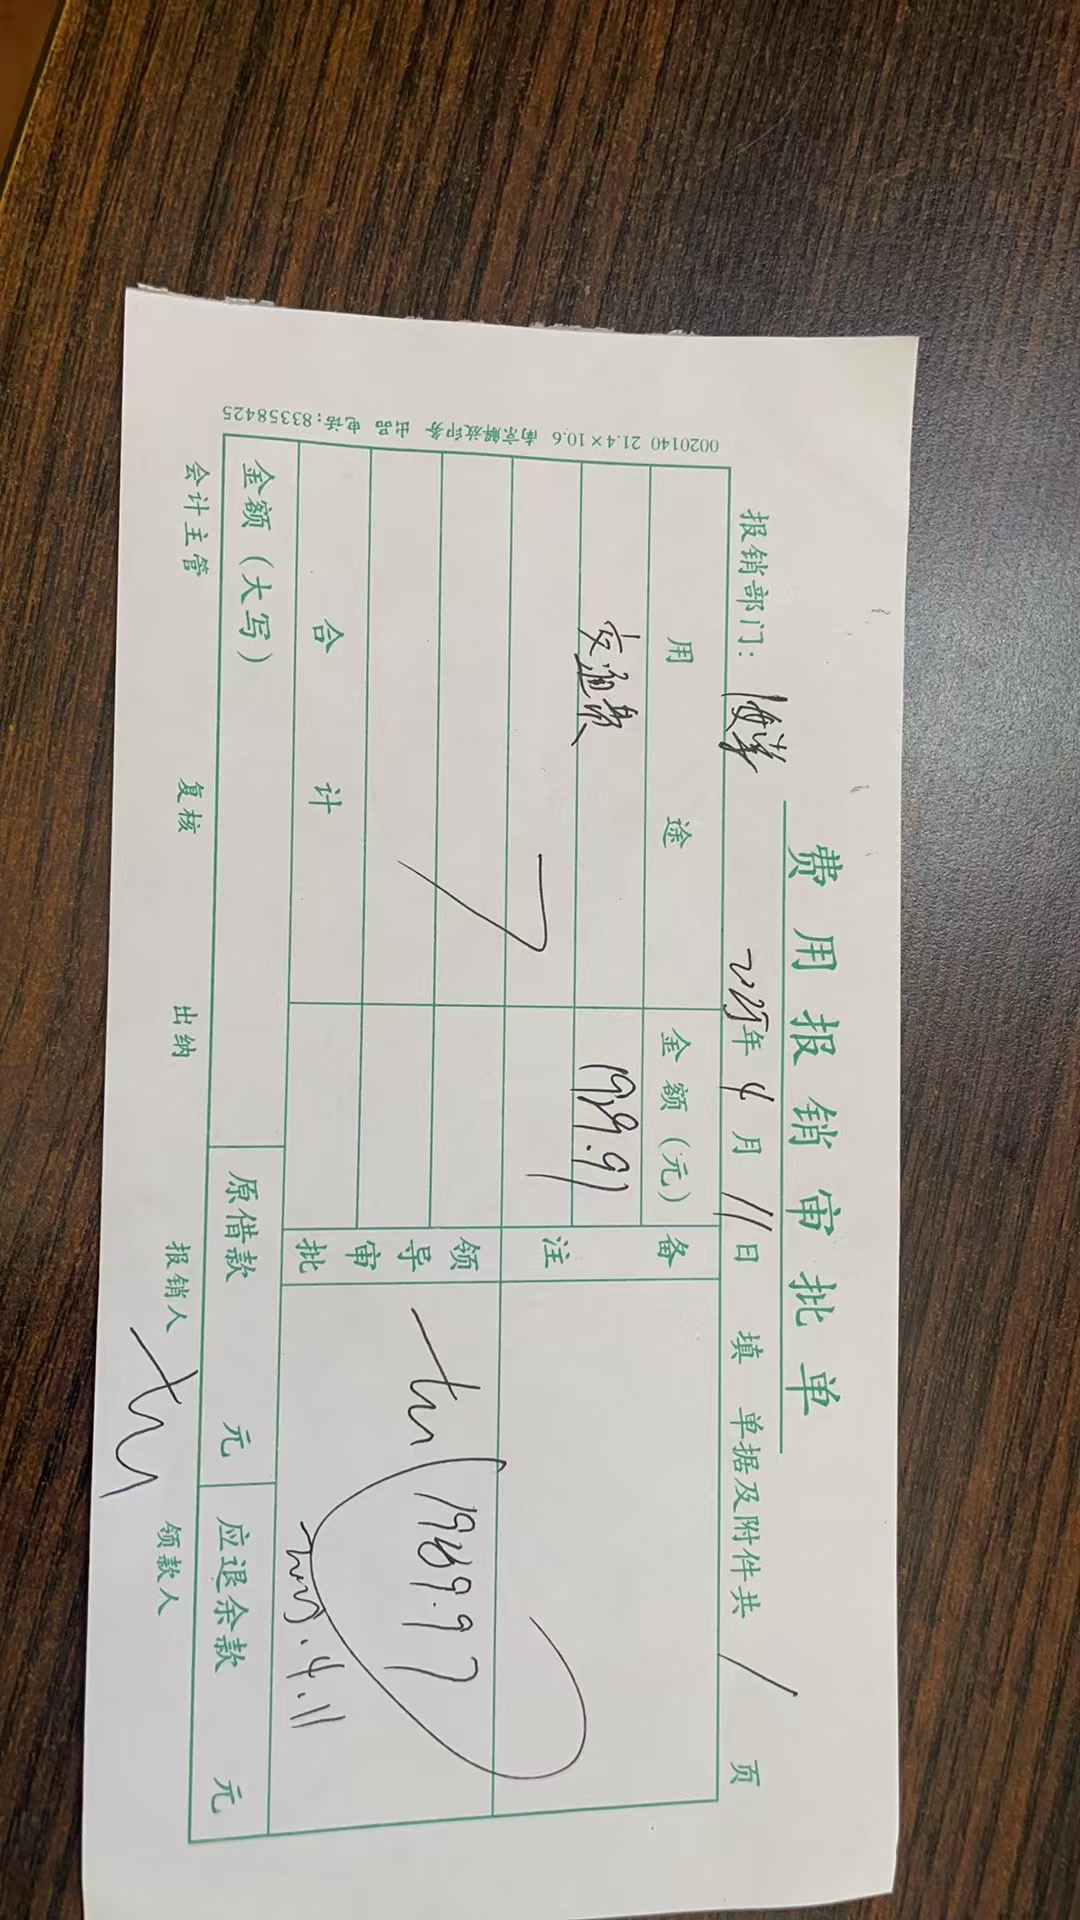 费用报销审批单
报销部门：海洋 2025年4月11日填 单据及附件共 1 页
用途 金额（元） 备注
交通费 1989.97
领导审批
1989.97
2025.4.11
合计
金额（大写） 原借款 元 应退余款 元
会计主管 复核 出纳 报销人 领款人
0020140 21.4×10.6 南京解放印务 出品 电话:83358425